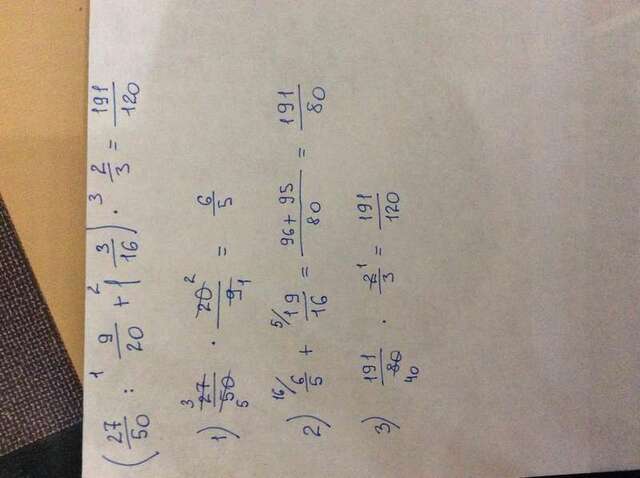 (27/50 :¹ 9/20 +² 1 3/16) ·³ 2/3 = 191/120
1) 27³/50₅ · 20²/9₁ = 6/5
2) ¹⁶/6/5 + ⁵/19/16 = 96+95/80 = 191/80
3) 191/80₄₀ · 2¹/3 = 191/120